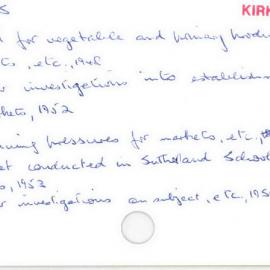 S KIRK
for vegetable and primary produc
ts, etc., 1948
r investigations into establishm
rkets, 1952
ning pressures for markets, etc.,
et conducted in Sutherland School
s, 1953
r investigations on subject, etc., 195